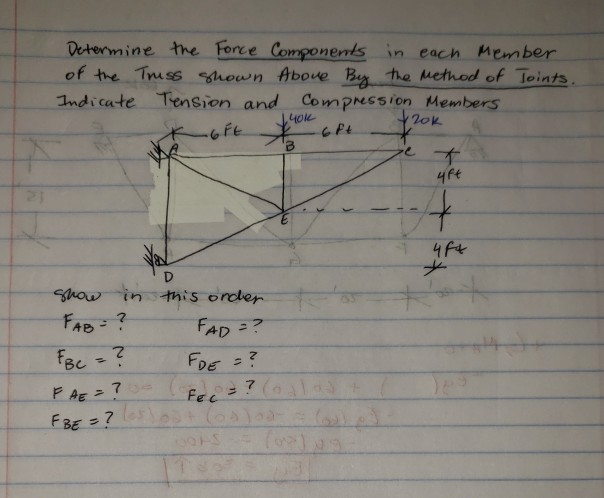 Determine the Force Components in each Member
of the Truss shown Above By the Method of Joints.
Indicate Tension and Compression Members
40k 20k
6 ft 6 ft
A B C
4ft
E
4ft
D
Show in this order
FAB = ? FAD = ?
FBC = ? FDE = ?
FAE = ? FEC = ?
FBE = ?